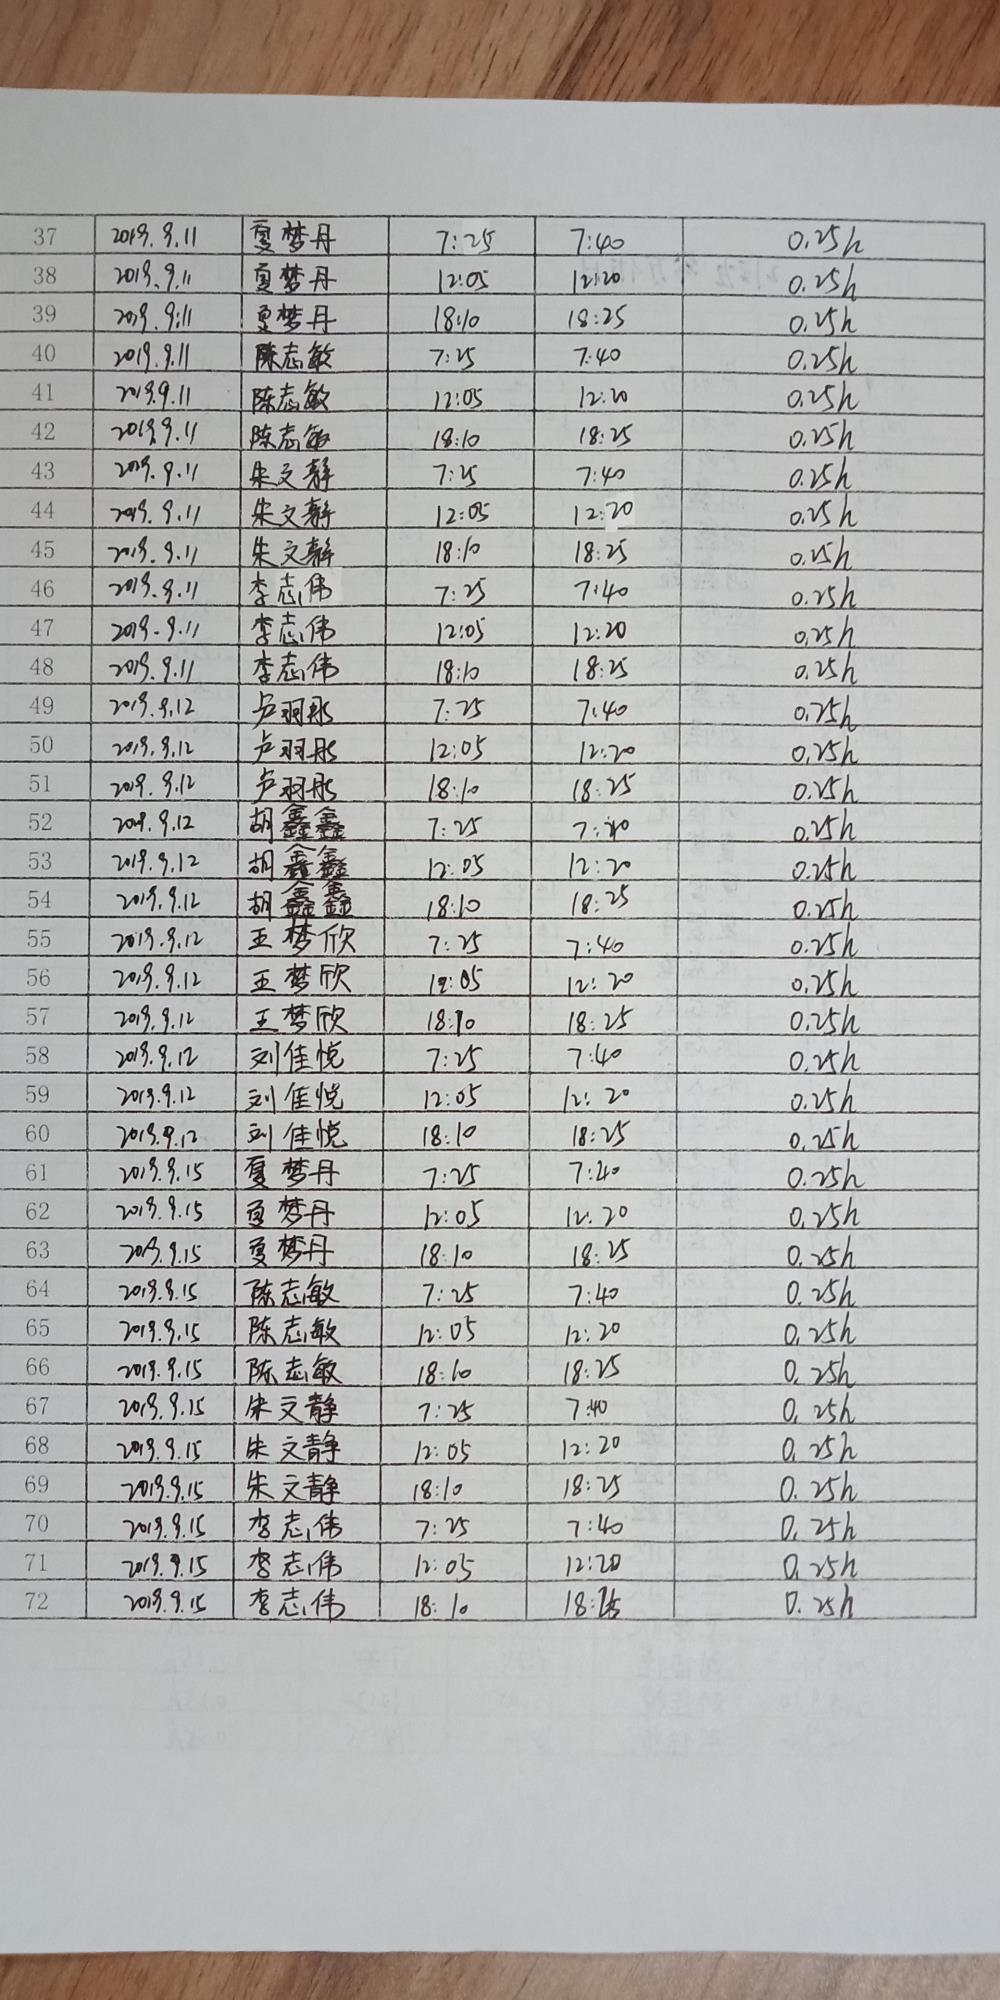 37 2019.9.11 夏梦丹 7:25 7:40 0.25h
38 2019.9.11 夏梦丹 12:05 12:20 0.25h
39 2019.9.11 夏梦丹 18:10 18:25 0.25h
40 2019.9.11 陈志敏 7:25 7:40 0.25h
41 2019.9.11 陈志敏 12:05 12:20 0.25h
42 2019.9.11 陈志敏 18:10 18:25 0.25h
43 2019.9.11 朱文静 7:25 7:40 0.25h
44 2019.9.11 朱文静 12:05 12:20 0.25h
45 2019.9.11 朱文静 18:10 18:25 0.25h
46 2019.9.11 李志伟 7:25 7:40 0.25h
47 2019.9.11 李志伟 12:05 12:20 0.25h
48 2019.9.11 李志伟 18:10 18:25 0.25h
49 2019.9.12 卢羽彤 7:25 7:40 0.25h
50 2019.9.12 卢羽彤 12:05 12:20 0.25h
51 2019.9.12 卢羽彤 18:10 18:25 0.25h
52 2019.9.12 胡鑫鑫 7:25 7:40 0.25h
53 2019.9.12 胡鑫鑫 12:05 12:20 0.25h
54 2019.9.12 胡鑫鑫 18:10 18:25 0.25h
55 2019.9.12 王梦欣 7:25 7:40 0.25h
56 2019.9.12 王梦欣 12:05 12:20 0.25h
57 2019.9.12 王梦欣 18:10 18:25 0.25h
58 2019.9.12 刘佳悦 7:25 7:40 0.25h
59 2019.9.12 刘佳悦 12:05 12:20 0.25h
60 2019.9.12 刘佳悦 18:10 18:25 0.25h
61 2019.9.15 夏梦丹 7:25 7:40 0.25h
62 2019.9.15 夏梦丹 12:05 12:20 0.25h
63 2019.9.15 夏梦丹 18:10 18:25 0.25h
64 2019.9.15 陈志敏 7:25 7:40 0.25h
65 2019.9.15 陈志敏 12:05 12:20 0.25h
66 2019.9.15 陈志敏 18:10 18:25 0.25h
67 2019.9.15 朱文静 7:25 7:40 0.25h
68 2019.9.15 朱文静 12:05 12:20 0.25h
69 2019.9.15 朱文静 18:10 18:25 0.25h
70 2019.9.15 李志伟 7:25 7:40 0.25h
71 2019.9.15 李志伟 12:05 12:20 0.25h
72 2019.9.15 李志伟 18:10 18:25 0.25h